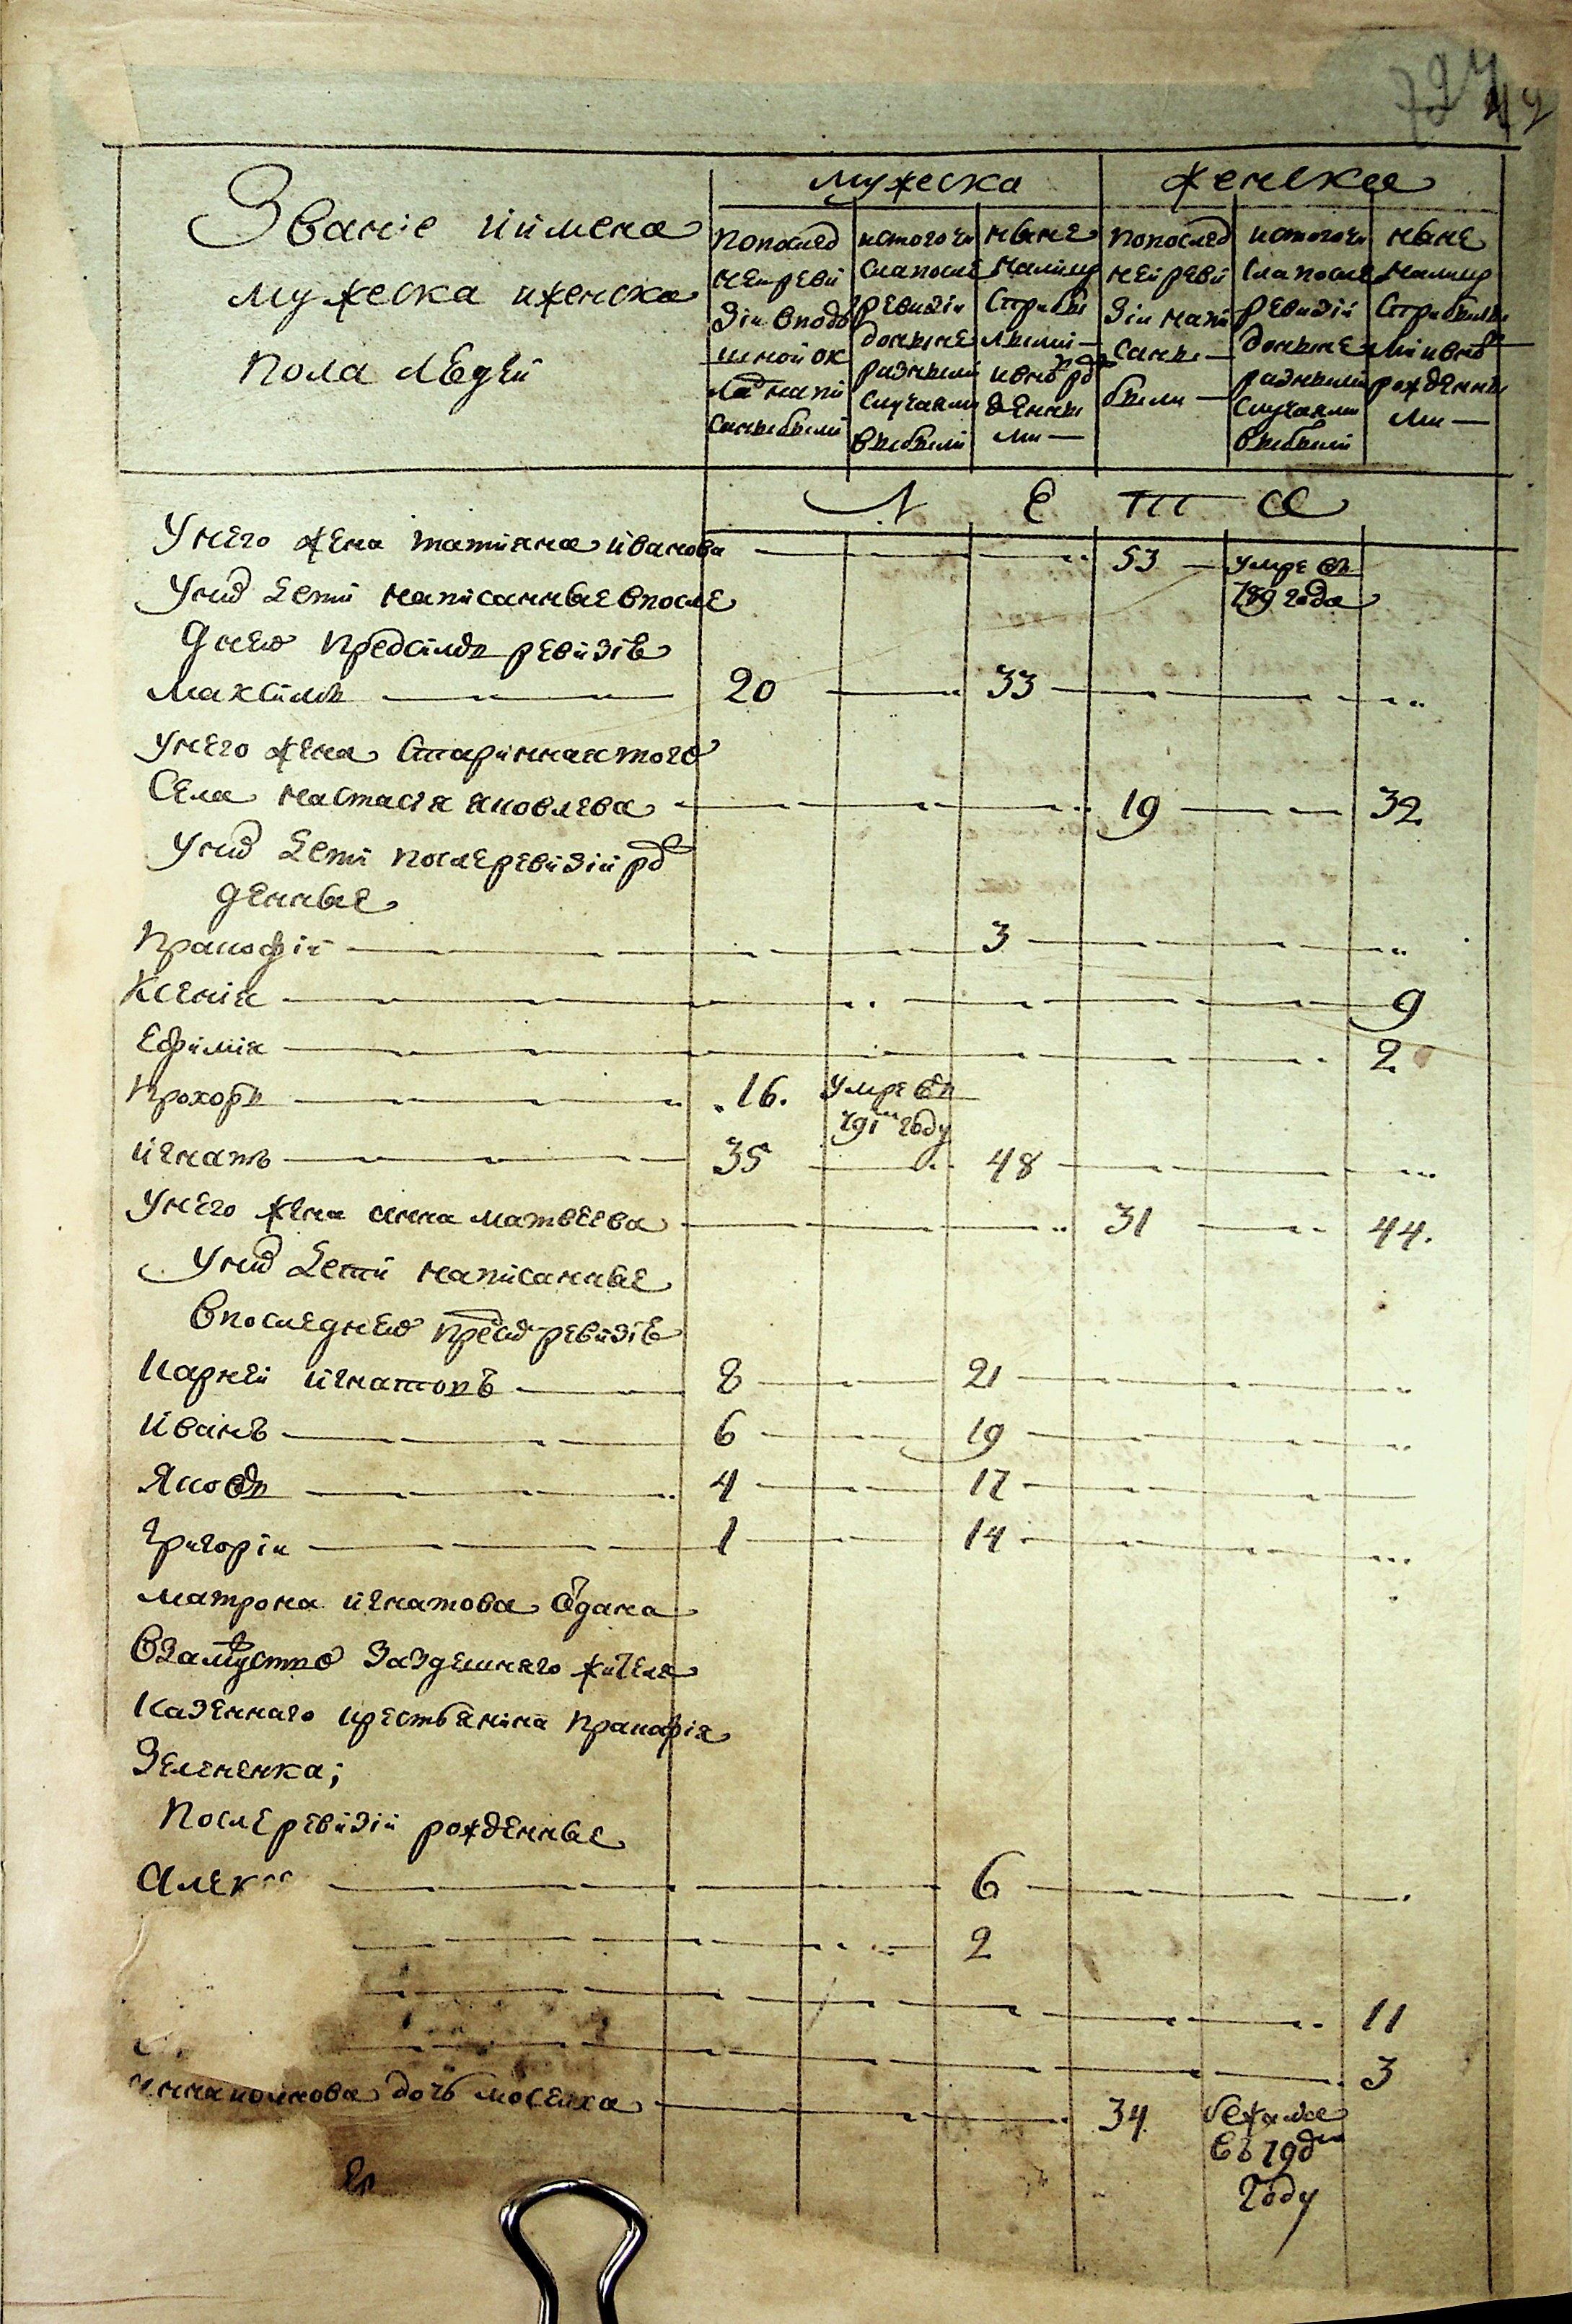 Званіе иимена
мужеска иженска
пола людей
мужеска
женска
попослед
ней реви
зіи вподу
шной ок
лад напи
саны были
истого чи
сла после
ревизіи
до ныне
разными
случаями
выбыли
ныне
на лицо
с прибы
лыми
и вно рож
денны
ми
попослед
ней реви
зіи напи
саны
были
истого чи
сла после
ревизіи
до ныне
разными
случаями
выбыли
ныне
на лицо
с прибылы
ми и вно
рожденны
ми
Л Е Т А
У него жена татияна иванова 53 умре въ
789 года
У них дети написанные в после
днею пред сим ревизіею
максимъ 20 33
У него жена старинная того
села настасія яковлева 19 32
У них дети после ревизіи рож
денные
Пракофій 3
Ксенія 9
Ефимія 2
Прохоръ 16. умре въ
791м году
игнатъ 35 48
У него жена анна матвеева 31 44.
У них дети написанные
в последнею пред сим ревизіею
Карней игнатовъ 8 21
Иванъ 6 19
Яковъ 4 17
Григорій 1 14
матрона игнатова отдана
в замужство за здешняго жителя
казеннаго крестьянина Пракофія
Зелененка;
После ревизіи рожденные
Алек 6
2
11
3
дочь мосейха 34 бежала
въ 79
году